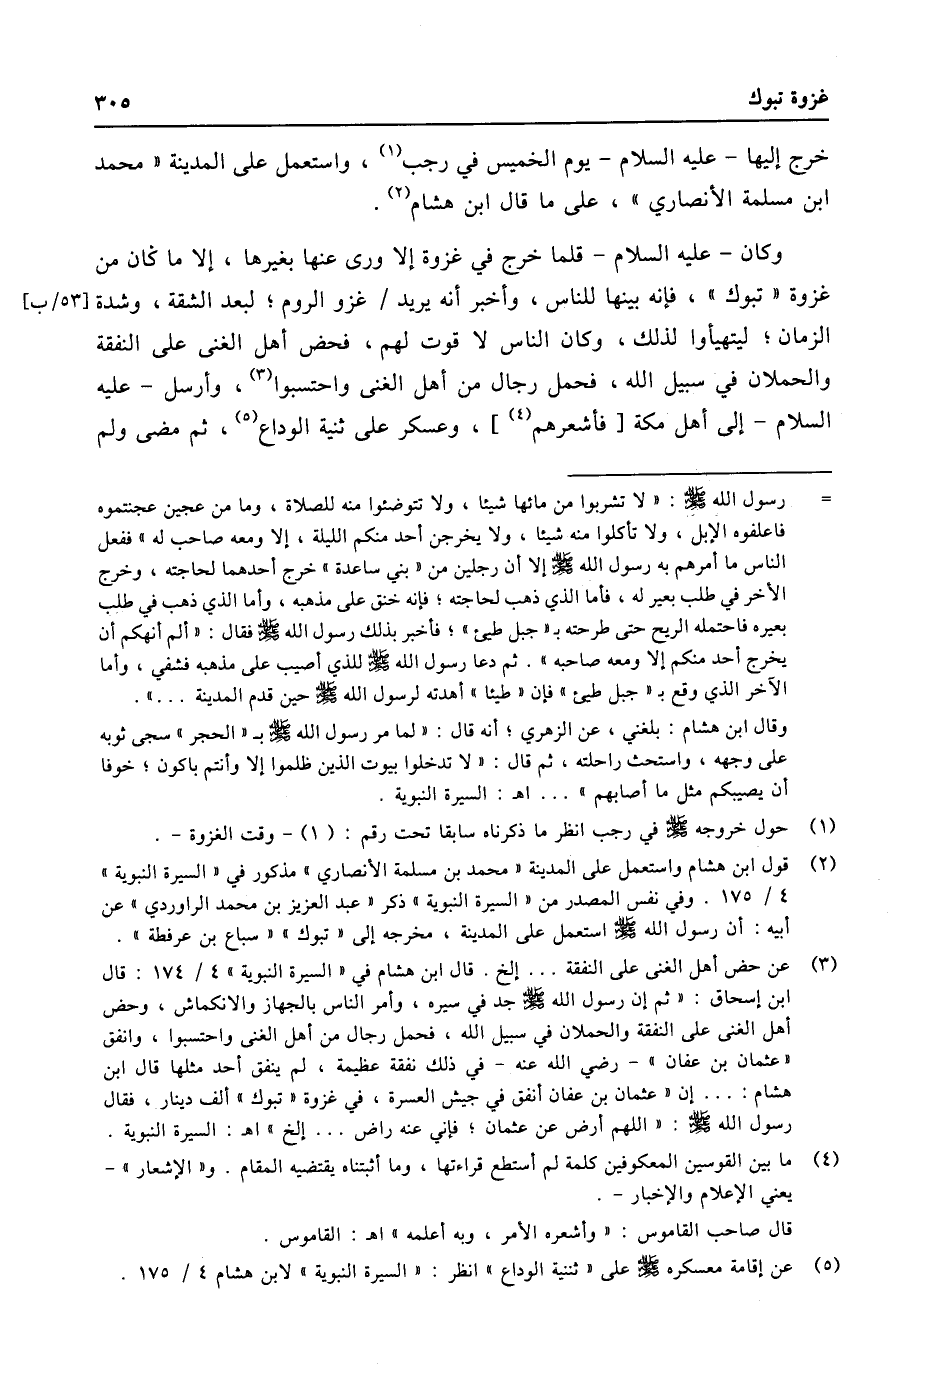 غزوة تبوك ٣٠٥
خرج إليها - عليه السلام - يوم الخميس في رجب(١) ، واستعمل على المدينة « محمد
ابن مسلمة الأنصاري » ، على ما قال ابن هشام(٢) .
وكان - عليه السلام - قلما خرج في غزوة إلا ورى عنها بغيرها ، إلا ما كان من
غزوة « تبوك » ، فإنه بينها للناس ، وأخبر أنه يريد / غزو الروم ؛ لبعد الشقة ، وشدة [٥٣/ب]
الزمان ؛ ليتهيأوا لذلك ، وكان الناس لا قوت لهم ، فحض أهل الغنى على النفقة
والحملان في سبيل الله ، فحمل رجال من أهل الغنى واحتسبوا(٣) ، وأرسل - عليه
السلام - إلى أهل مكة [ فأشعرهم(٤) ] ، وعسكر على ثنية الوداع(٥) ، ثم مضى ولم
= رسول الله ﷺ : « لا تشربوا من مائها شيئا ، ولا تتوضئوا منه للصلاة ، وما من عجين عجنتموه
فاعلفوه الإبل ، ولا تأكلوا منه شيئا ، ولا يخرجن أحد منكم الليلة ، إلا ومعه صاحب له » ففعل
الناس ما أمرهم به رسول الله ﷺ إلا أن رجلين من « بني ساعدة » خرج أحدهما لحاجته ، وخرج
الأخر في طلب بعير له ، فأما الذي ذهب لحاجته ؛ فإنه خنق على مذهبه ، وأما الذي ذهب في طلب
بعيره فاحتمله الريح حتى طرحته بـ « جبل طيئ » ؛ فأخبر بذلك رسول الله ﷺ فقال : « ألم أنهكم أن
يخرج أحد منكم إلا ومعه صاحبه » . ثم دعا رسول الله ﷺ للذي أصيب على مذهبه فشفي ، وأما
الآخر الذي وقع بـ « جبل طيئ » فإن « طيئا » أهدته لرسول الله ﷺ حين قدم المدينة ...» .
وقال ابن هشام : بلغني ، عن الزهري ؛ أنه قال : « لما مر رسول الله ﷺ بـ « الحجر » سجى ثوبه
على وجهه ، واستحث راحلته ، ثم قال : « لا تدخلوا بيوت الذين ظلموا إلا وأنتم باكون ؛ خوفا
أن يصيبكم مثل ما أصابهم » ... اهـ : السيرة النبوية .
(١) حول خروجه ﷺ في رجب انظر ما ذكرناه سابقا تحت رقم : ( ١) - وقت الغزوة - .
(٢) قول ابن هشام واستعمل على المدينة « محمد بن مسلمة الأنصاري » مذكور في « السيرة النبوية »
٤ / ١٧٥ . وفي نفس المصدر من « السيرة النبوية » ذكر « عبد العزيز بن محمد الراوردي » عن
أبيه : أن رسول الله ﷺ استعمل على المدينة ، مخرجه إلى « تبوك » « سباع بن عرفطة » .
(٣) عن حض أهل الغنى على النفقة ... إلخ . قال ابن هشام في « السيرة النبوية » ٤ / ١٧٤ : قال
ابن إسحاق : « ثم إن رسول الله ﷺ جد في سيره ، وأمر الناس بالجهاز والانكماش ، وحض
أهل الغنى على النفقة والحملان في سبيل الله ، فحمل رجال من أهل الغنى واحتسبوا ، وانفق
«عثمان بن عفان » - رضي الله عنه - في ذلك نفقة عظيمة ، لم ينفق أحد مثلها قال ابن
هشام : ... إن « عثمان بن عفان أنفق في جيش العسرة ، في غزوة « تبوك » ألف دينار ، فقال
رسول الله ﷺ : « اللهم أرض عن عثمان ؛ فإني عنه راض ... إلخ » اهـ : السيرة النبوية .
(٤) ما بين القوسين المعكوفين كلمة لم أستطع قراءتها ، وما أثبتناه يقتضيه المقام . و« الإشعار » -
يعني الإعلام والإخبار - .
قال صاحب القاموس : « وأشعره الأمر ، وبه أعلمه » اهـ : القاموس .
(٥) عن إقامة معسكره ﷺ على « ثننية الوداع » انظر : « السيرة النبوية » لابن هشام ٤ / ١٧٥ .